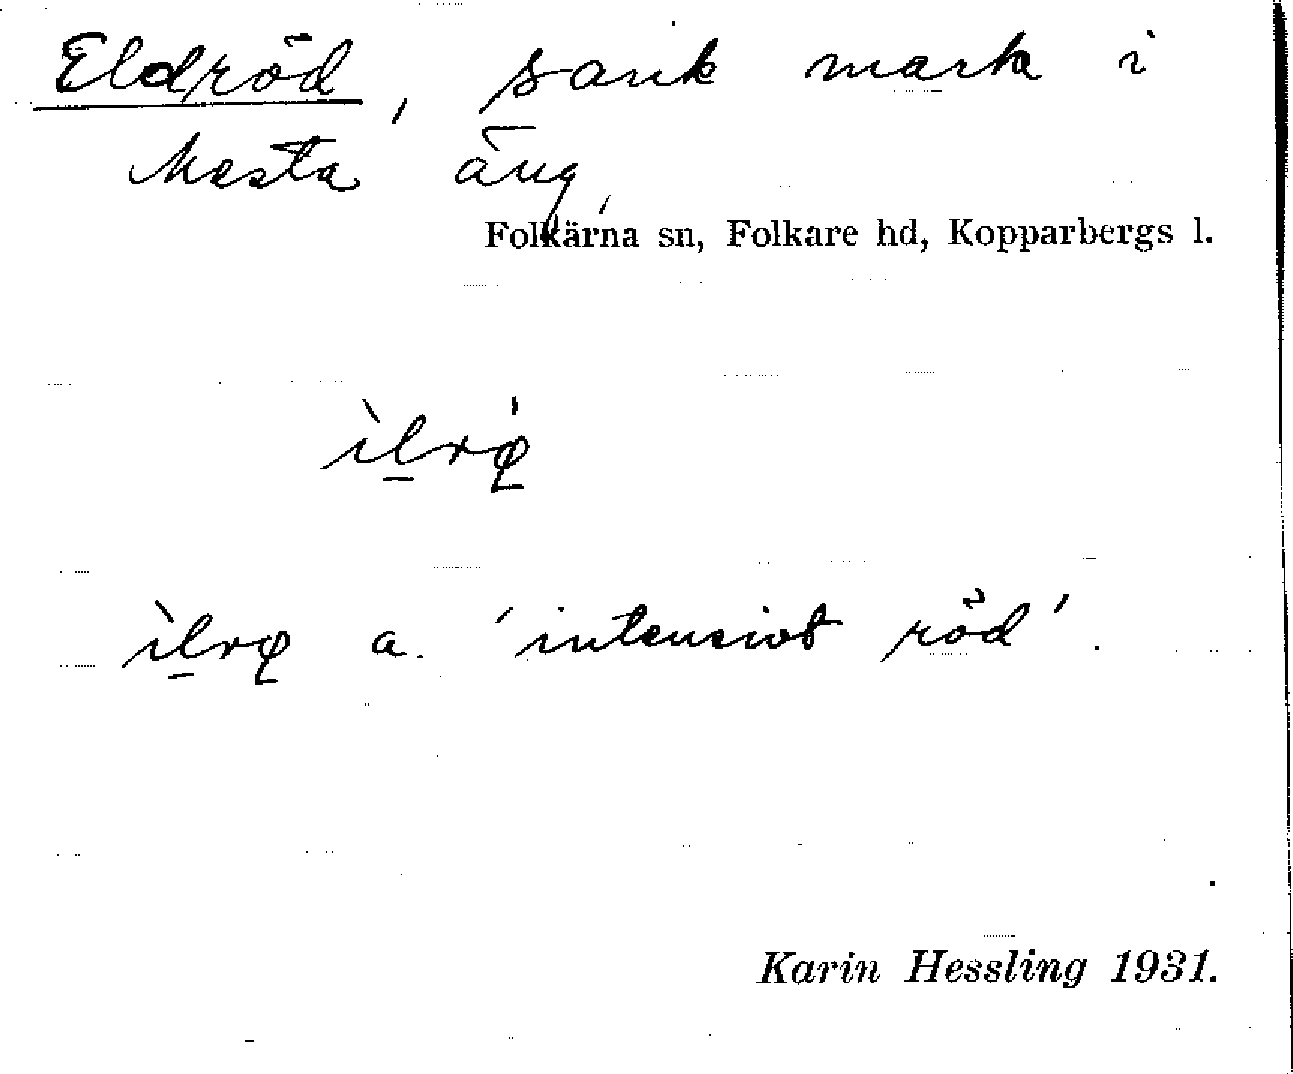 Eldröd, sank mark i
Mästa äng,
Folkärna sn, Folkare hd, Kopparbergs l.
a. 'intensivt röd'.
Karin Hessling 1931.